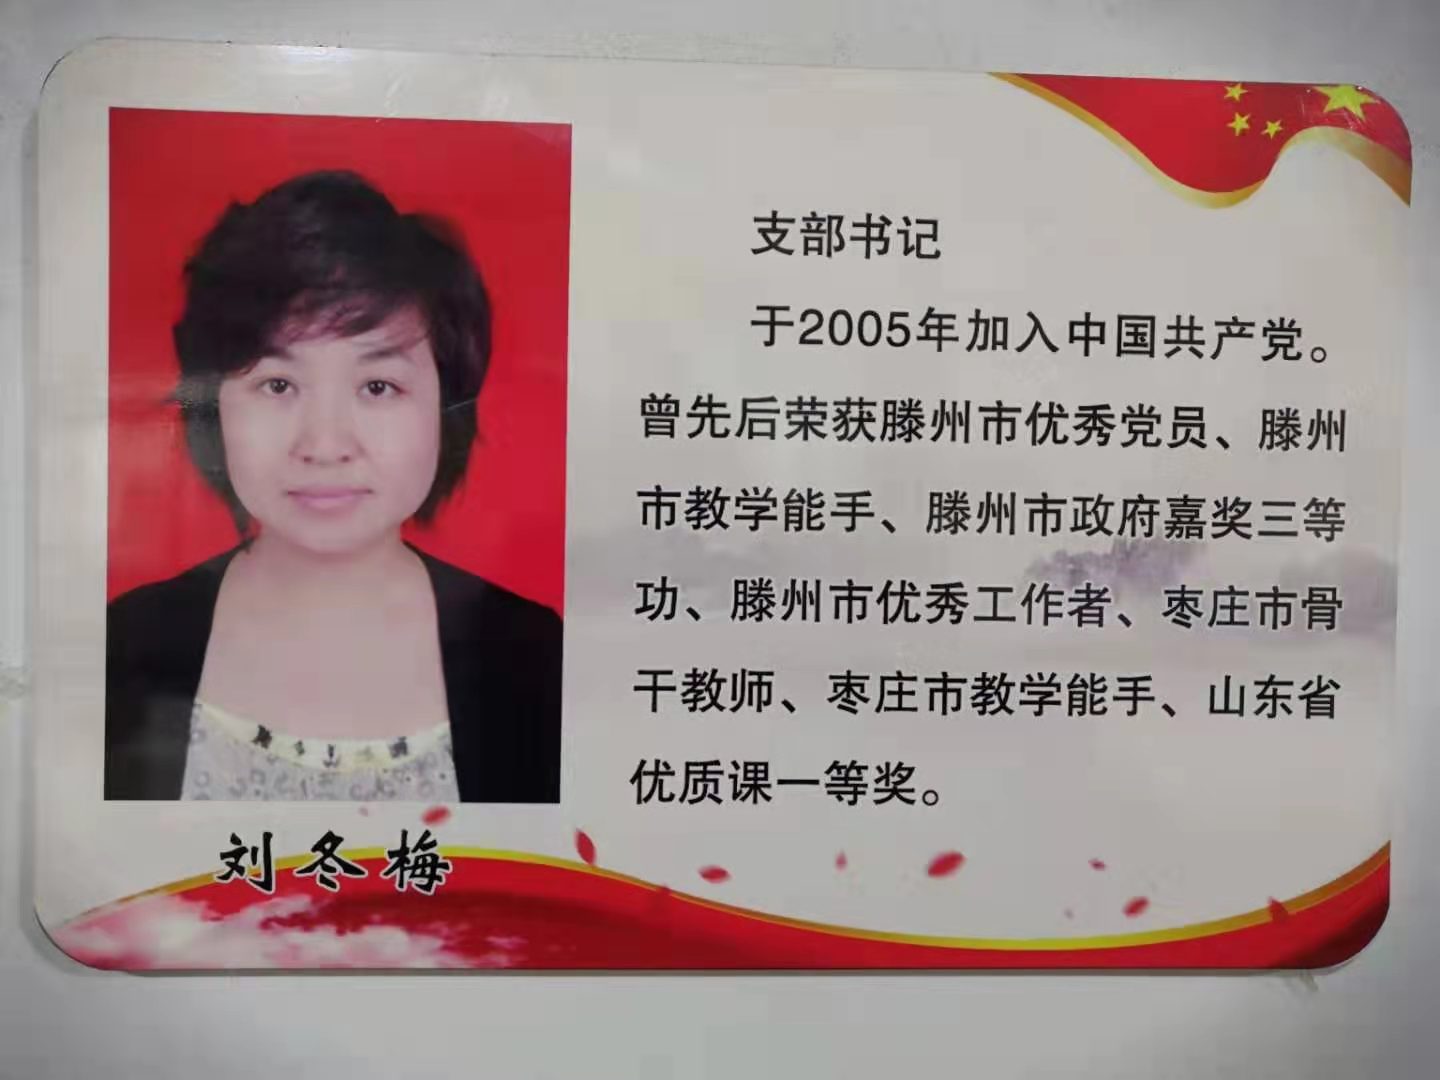 支部书记
于2005年加入中国共产党。
曾先后荣获滕州市优秀党员、滕州
市教学能手、滕州市政府嘉奖三等
功、滕州市优秀工作者、枣庄市骨
干教师、枣庄市教学能手、山东省
优质课一等奖。
刘冬梅